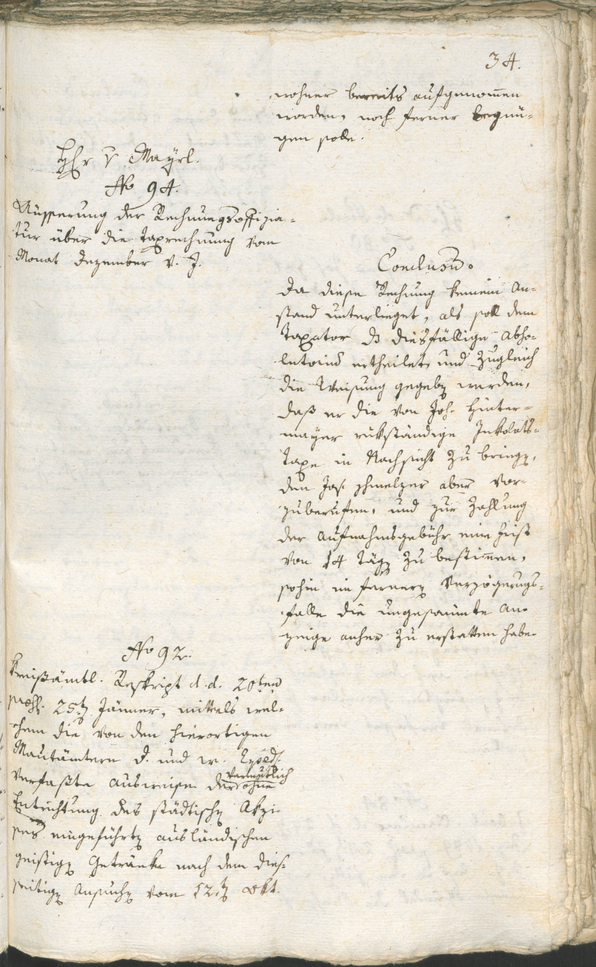 34.
wohner bereits aufgenommen
worden, noch ferner begnü-
gen solle.
Hr v Mayrl.
No 94.
Äusserung der Rechnungsoffizia-
tur über die Taxrechnung vom
Monat Dezember v. J.
Conclusum.
Da diese Rechnung keinem An-
stand unterlieget, als soll dem
Taxator das diesfällige Abso-
lutorium ertheilet, und zugleich
die Weisung gegeben werden,
daß er die von Joh. Hinter-
mayer rükständige Inkolats-
Taxe in Nachsicht zu bringen,
den Jos. Schmelzer aber vor-
zuberufen, und zur Zahlung
der Aufnahmsgebühr eine Frist
von 14 Tägen zu bestimmen,
sohin im fernern Verzögerungs-
falle die ungesaumte An-
zeige anher zu erstatten habe.
No 92.
Kreißämtl. Reskript d. d. 20ten
25ten Jänner, mittels wel-
chem die von den hierortigen
Mautämtern d. und w.
verfaßte Ausweise der vermutlich ohne
Entrichtung des städtischen Akzi-
ses eingeführten ausländischen
geistigen Getränke nach dem dies-
seitigen Ansuchen vom 12ten Okt.